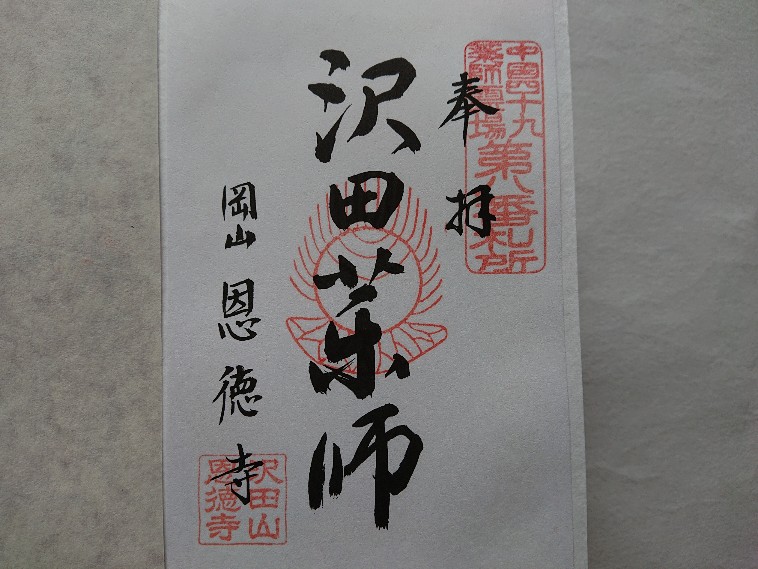 中国四十九
薬師霊場
第八番札所
奉拝
沢田薬師
岡山 恩徳寺
沢田山
恩徳寺